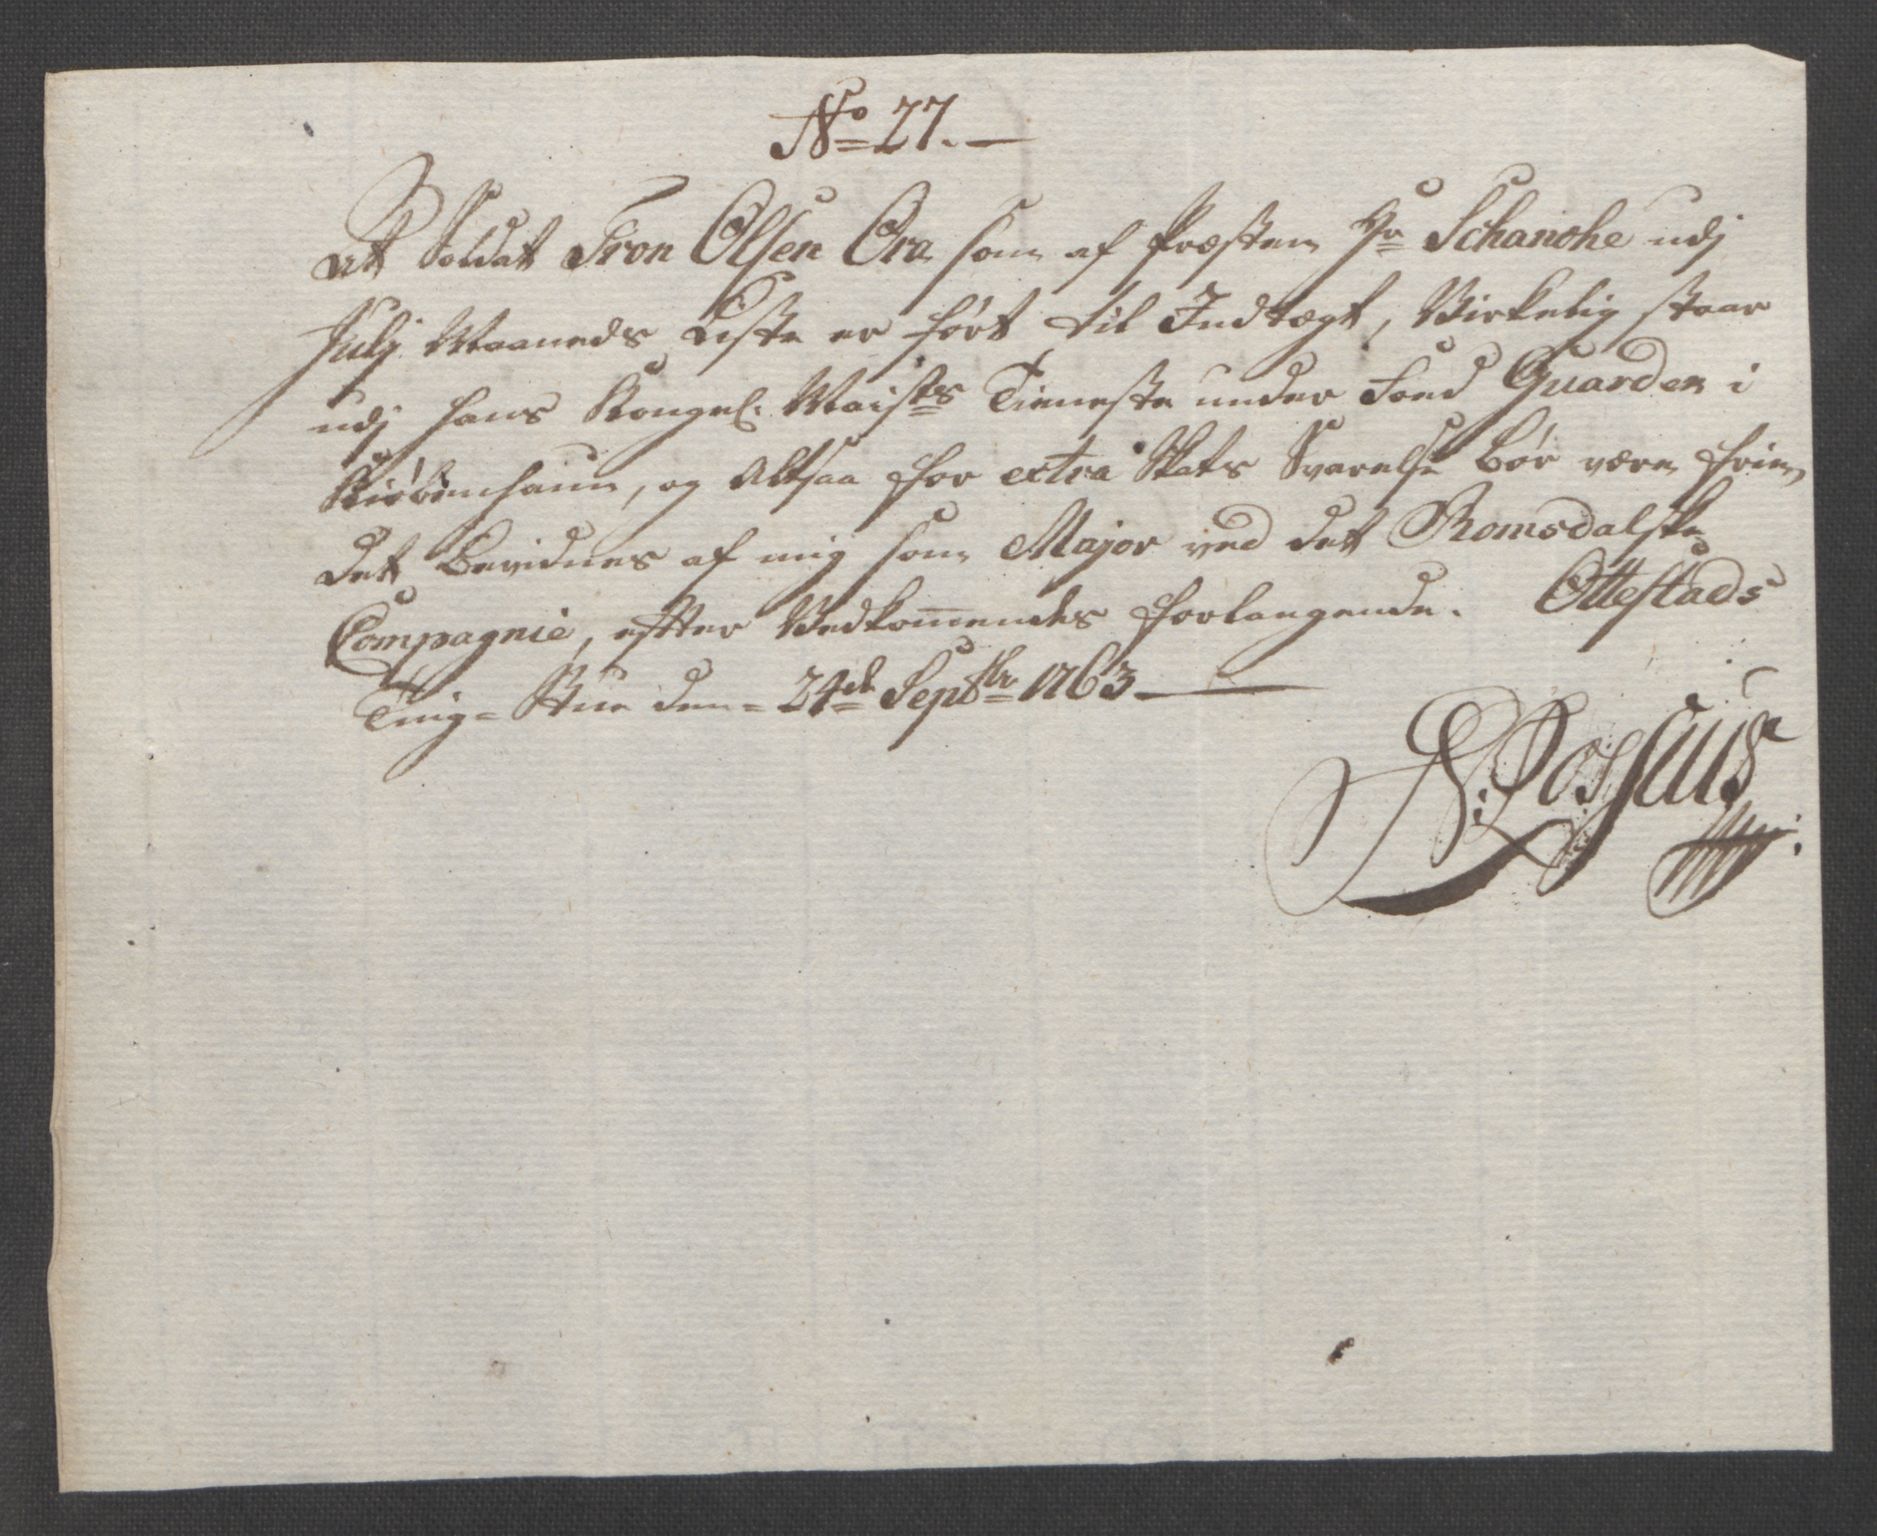 No 27.
At Soldat Tron Olsen Øra som af Præsten Hr Schanche udj
Julj Maaneds Liste er ført til Indtægt, Virkelig staar
udj hans Kongel. Maists Tieneste under Foed Guarden i
Kiøbenhaun, og Altsaa for extra Skats Svarelse bør være frie,
det bevidnes af mig som Major ved det Romsdalske
Compagnie, effter Vedkommendes forlangende. Ottestads
Ting-Stue den-24de Septbr 1763